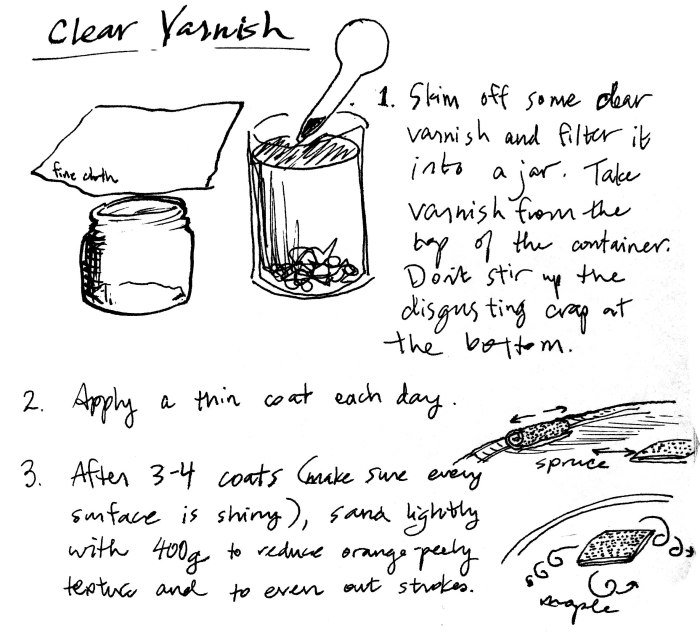 Clear Varnish
fine cloth
1. Skim off some clear
varnish and filter it
into a jar. Take
varnish from the
top of the container.
Don't stir up the
disgusting crap at
the bottom.
2. Apply a thin coat each day.
3. After 3-4 coats (make sure every
surface is shiny), sand lightly
with 400g to reduce orange-peely
texture and to even out strokes.
spruce
maple